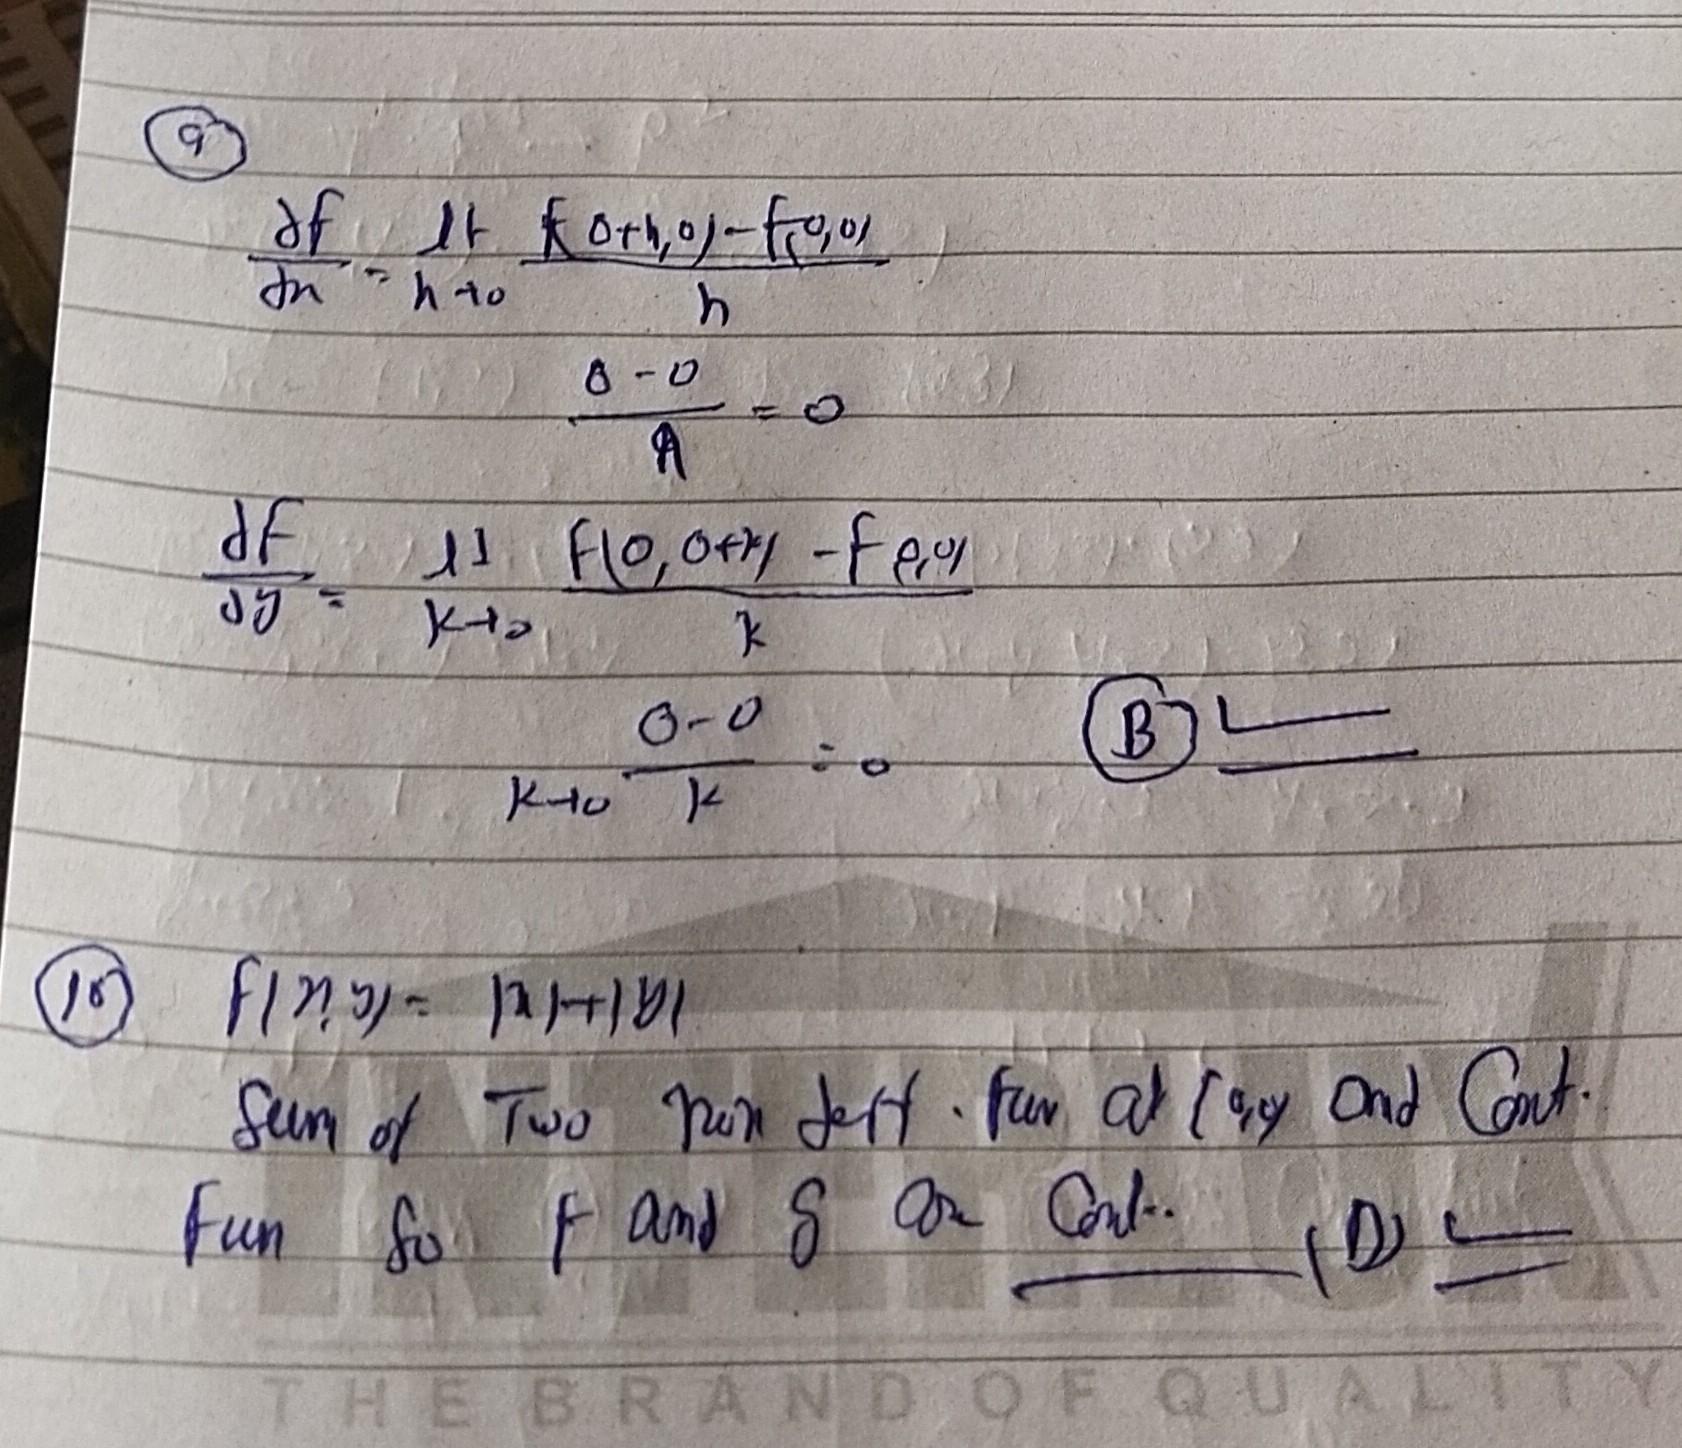 9
∂f/∂x = lt h→0 f(0+h,0)-f(0,0)/h
0-0/h = 0
∂f/∂y = lt k→0 f(0,0+k)-f(0,0)/k
k→0 0-0/k = 0 (B)
10 f(x,y) = |x|+|y|
Sum of Two non diff. fun at (0,0) and Cont.
Fun So f and g are Cont.. (D)
THE BRAND OF QUALITY